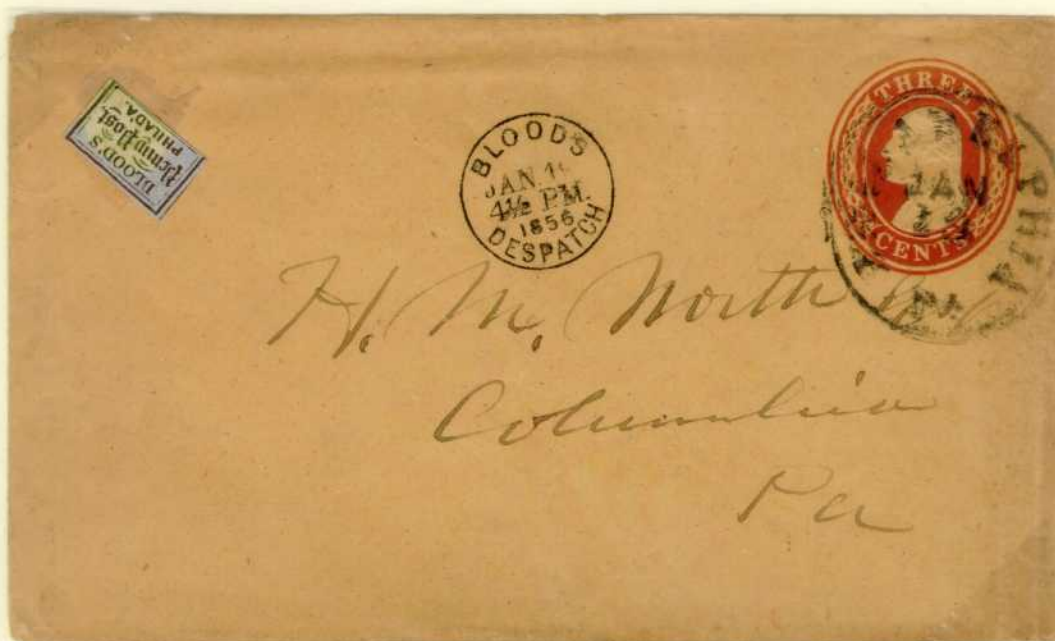 BLOOD'S
Penny Post,
PHILADA.
BLOOD'S
JAN
4½ P.M.
1856
DESPATCH
THREE
CENTS
JAN
Pa
H. M. North
Columbia
Pa